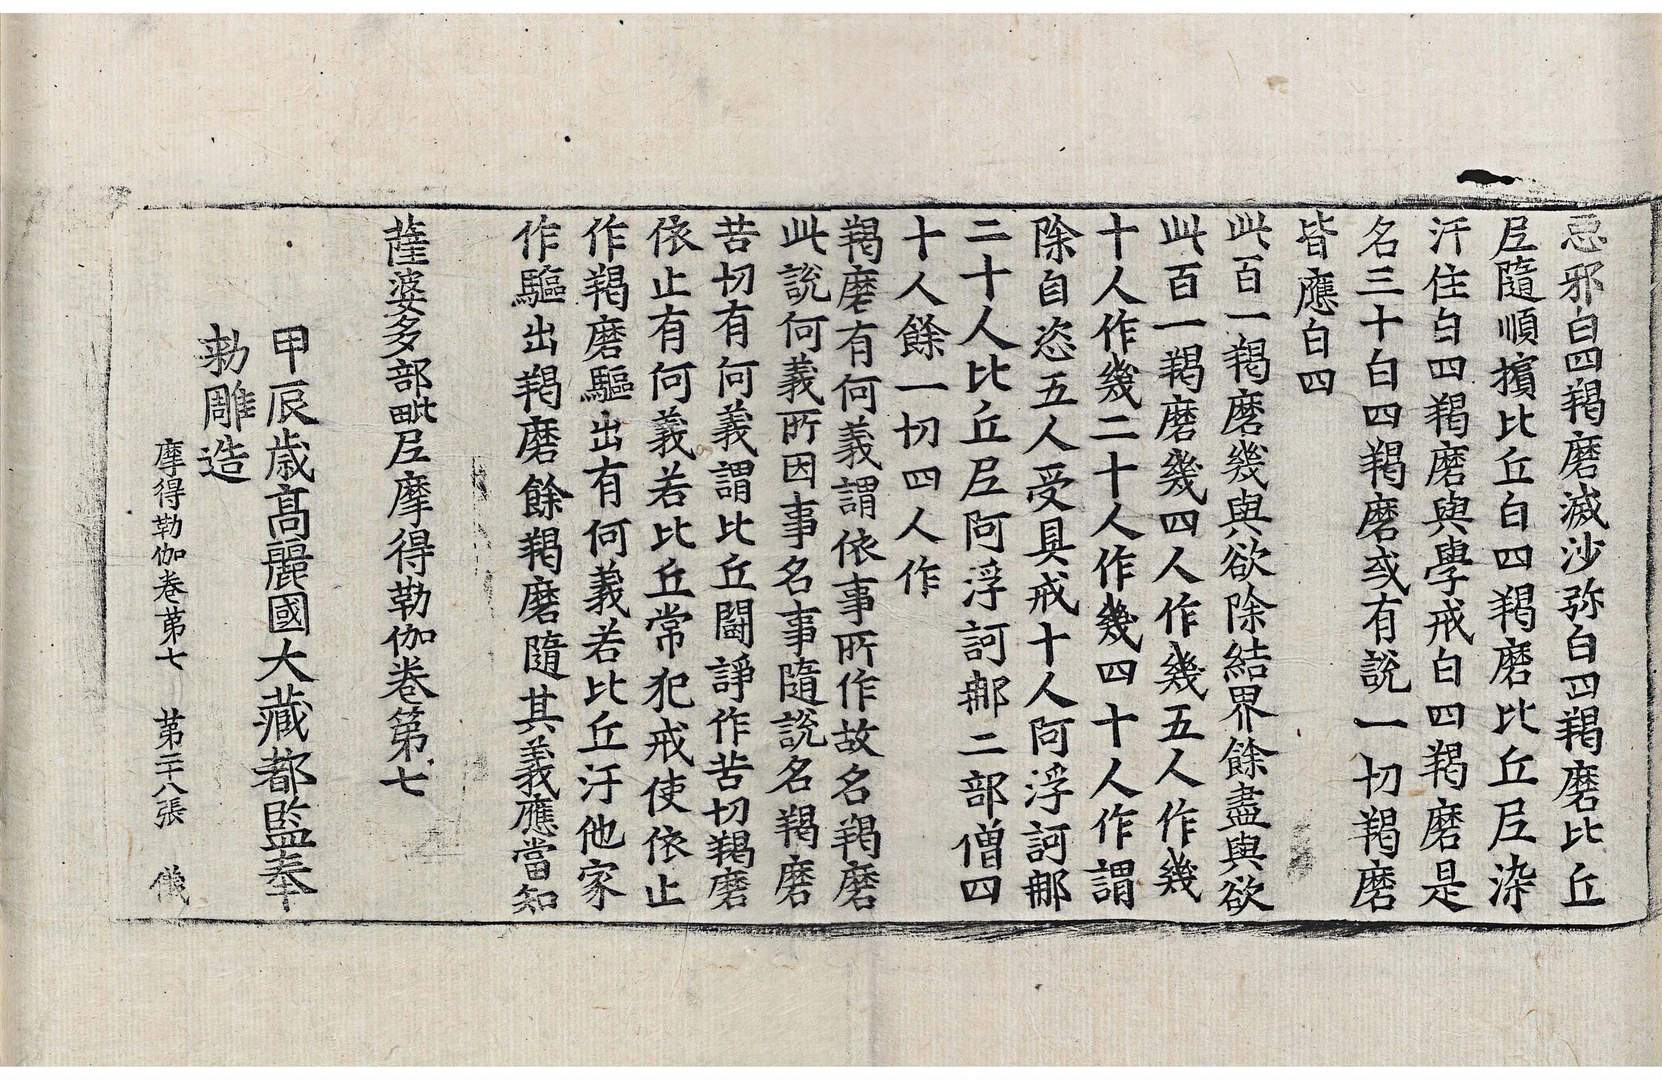 忌邪白四羯磨滅沙弥白四羯磨比丘
尼隨順擯比丘白四羯磨比丘尼染
汙住白四羯磨與學戒白四羯磨是
名三十白四羯磨或有說一切羯磨
皆應白四
此百一羯磨幾與欲除結界餘盡與欲
此百一羯磨幾四人作幾五人作幾
十人作幾二十人作幾四十人作謂
除自恣五人受具戒十人阿浮訶那
二十人比丘尼阿浮訶那二部僧四
十人餘一切四人作
羯磨有何義謂依事所作故名羯磨
此說何義所因事名事隨說名羯磨
苦切有何義謂比丘鬪諍作苦切羯磨
依止有何義若比丘常犯戒使依止
作羯磨驅出有何義若比丘汙他家
作驅出羯磨餘羯磨隨其義應當知
薩婆多部毗尼摩得勒伽卷第七
甲辰歲高麗國大藏都監奉
勅雕造
摩得勒伽卷第七 第二十八張 儀